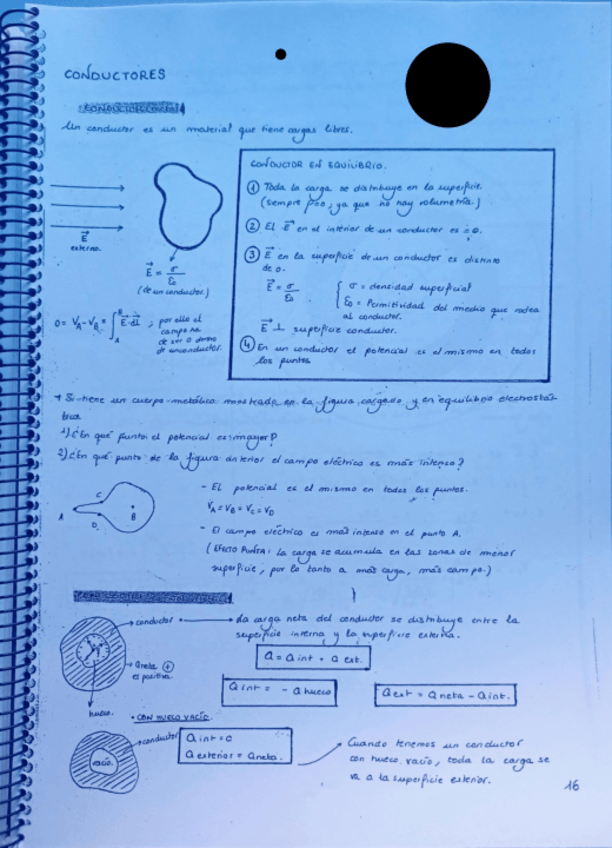 CONDUCTORES
Un conductor es un material que tiene cargas libres.
E
externo.
E = σ / ε₀
(de un conductor.)
0 = V_A - V_B = ∫_A^B E · dl ; por ello el
campo ha
de ser 0 dentro
de un conductor.
CONDUCTOR EN EQUILIBRIO.
① Toda la carga se distribuye en la superficie.
(siempre ρ=0, ya que no hay volumetría.)
② El E en el interior de un conductor es = 0.
③ E en la superficie de un conductor es distinto
de 0.
E = σ / ε₀
σ = densidad superficial
ε₀ = Permitividad del medio que rodea
al conductor.
E ⊥ superficie conductor.
④ En un conductor el potencial es el mismo en todos
los puntos
Si tiene un cuerpo metálico mostrada en la figura, cargado y en equilibrio electrostá-
tico
1) ¿En qué punto el potencial es mayor?
2) ¿En qué punto de la figura anterior el campo eléctrico es más intenso?
A
C
B
D
- El potencial es el mismo en todos los puntos.
V_A = V_B = V_C = V_D
- El campo eléctrico es más intenso en el punto A.
(EFECTO PUNTA: La carga se acumula en las zonas de menor
superficie, por lo tanto a más carga, más campo.)
conductor
La carga neta del conductor se distribuye entre la
superficie interna y la superficie externa.
Q = Q int + Q ext.
Qneta (+)
es positiva
Q int = - Q hueco
Q ext = Q neta - Q int.
hueco.
• CON HUECO VACÍO.
conductor
vacío.
Q int = 0
Q exterior = Q neta.
Cuando tenemos un conductor
con hueco vacío, toda la carga se
va a la superficie exterior.
16